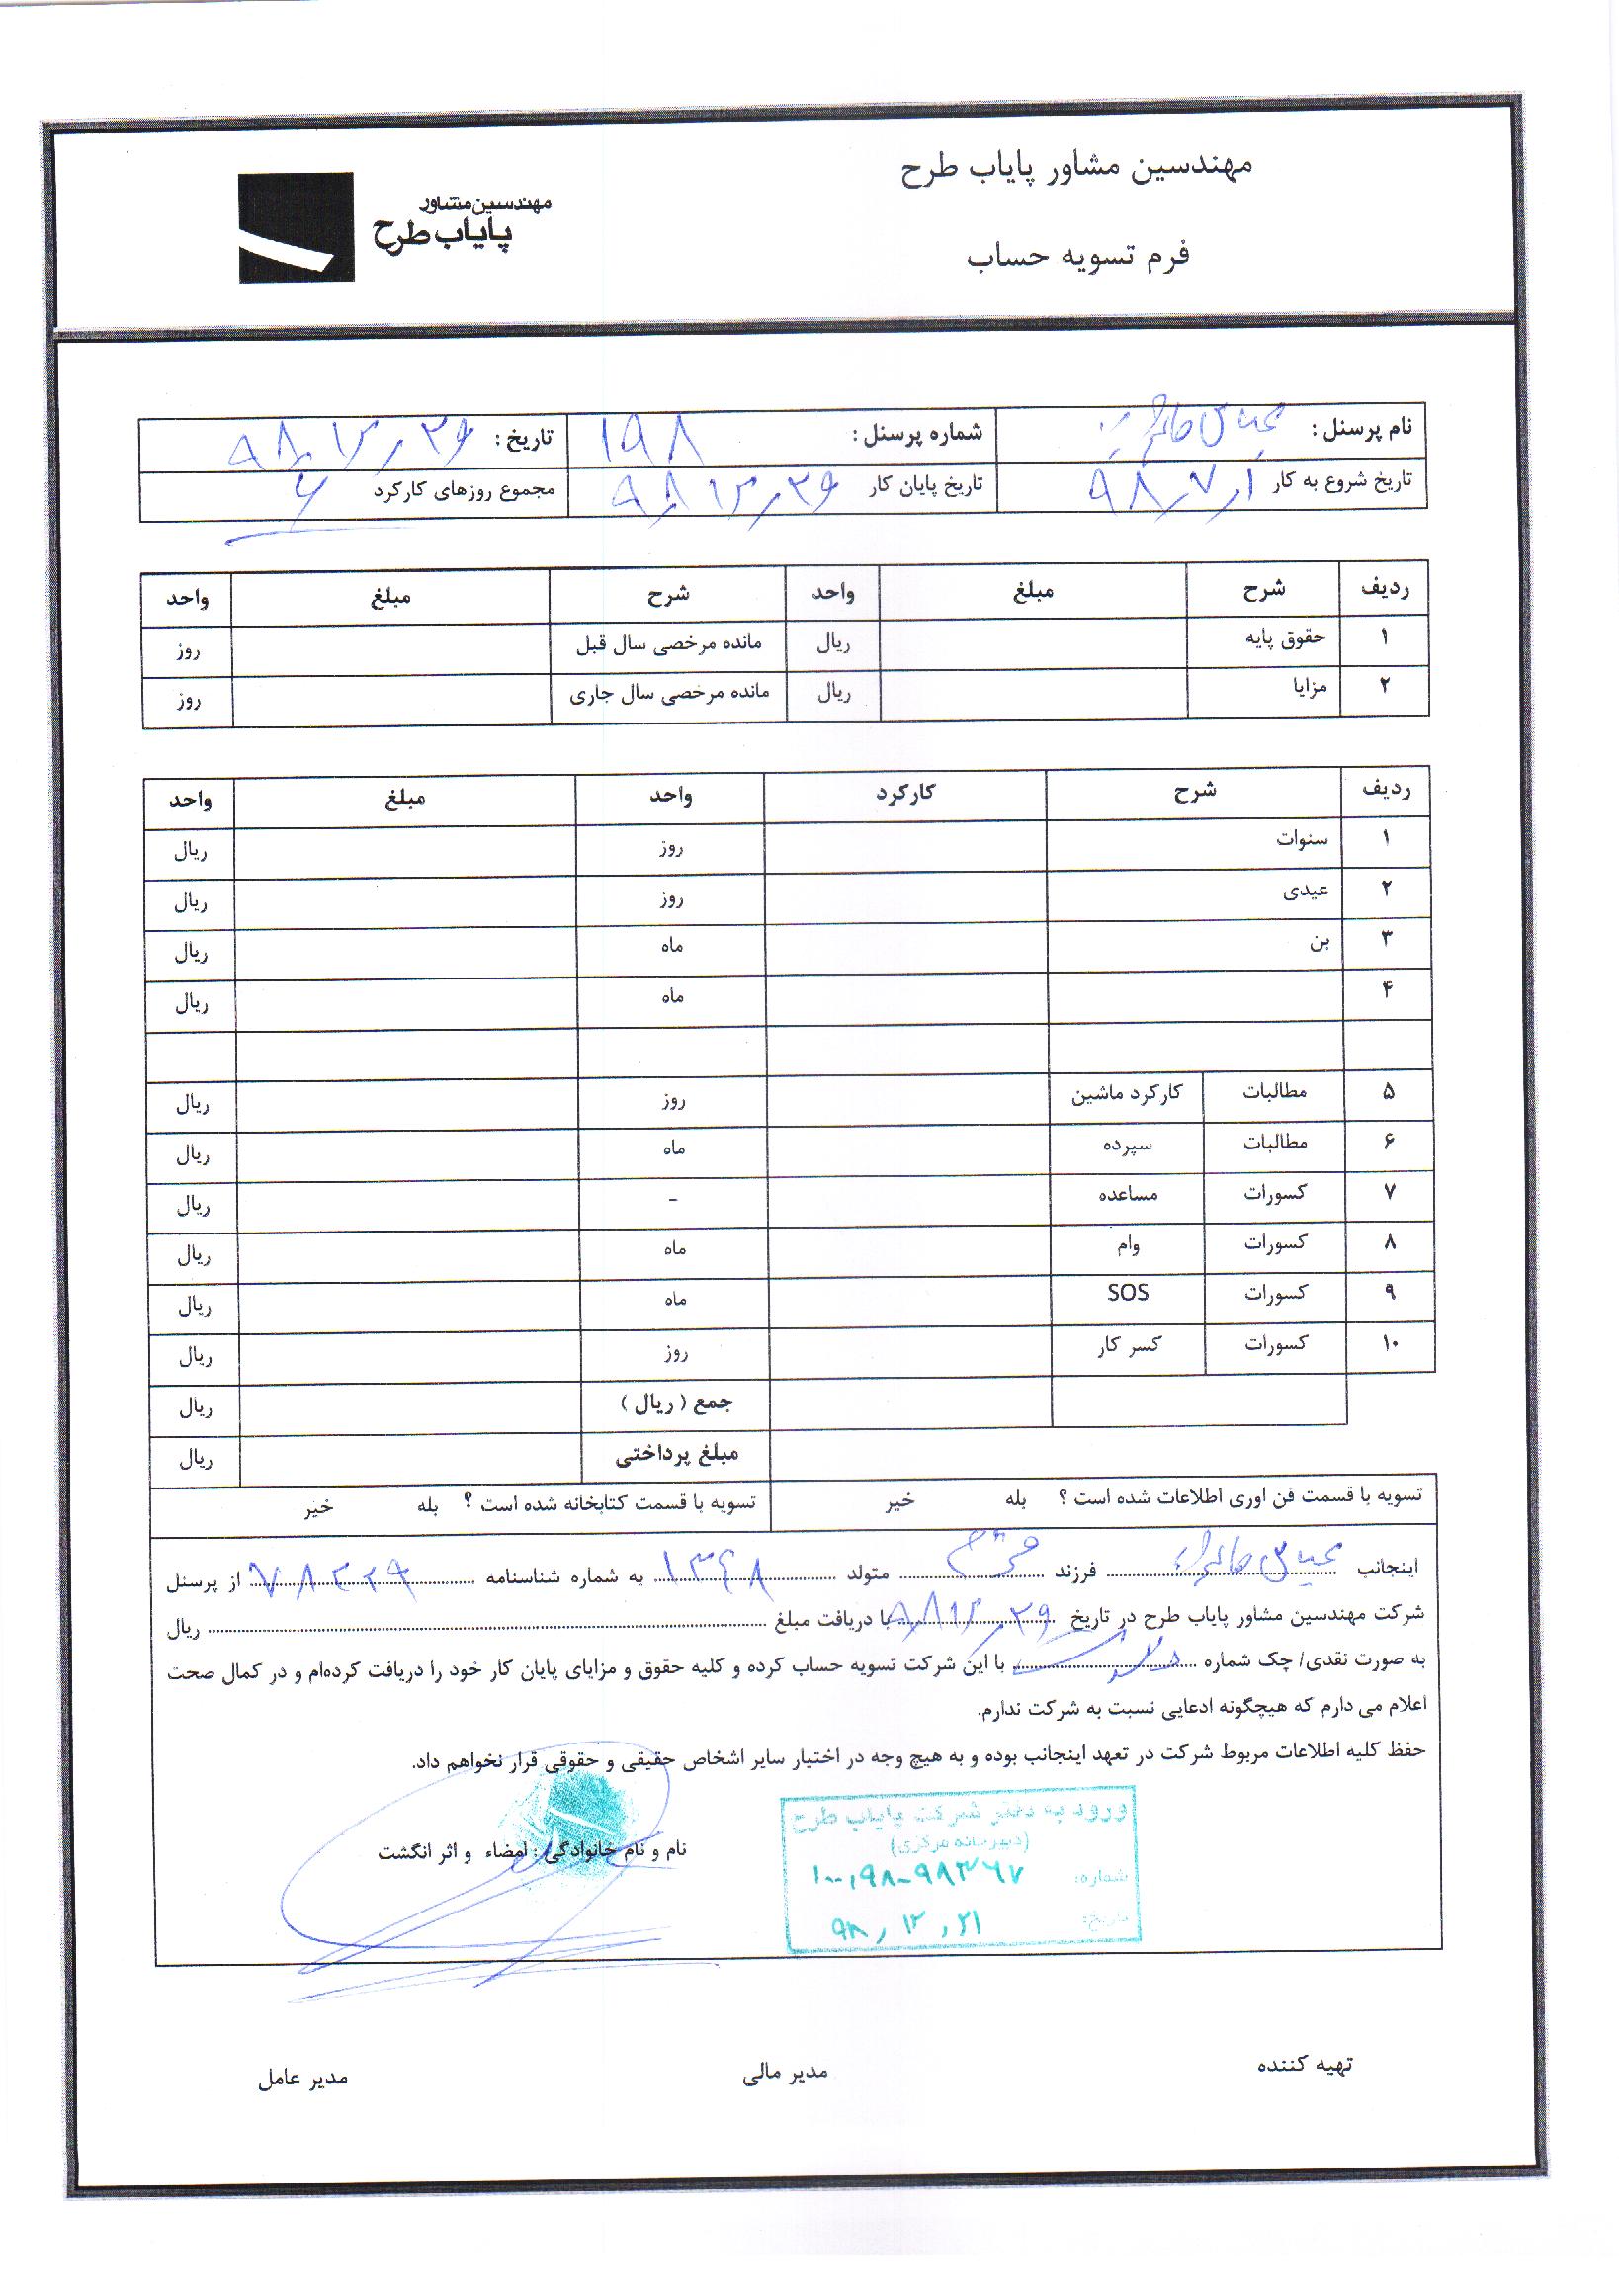 مهندسین مشاور پایاب طرح
مهندسین مشاور
پایاب طرح
فرم تسویه حساب
نام پرسنل : عباس شماره پرسنل : ۱۹۸ تاریخ : ۹۸,۱۲,۲۹
تاریخ شروع به کار ۹۸,۷,۱ تاریخ پایان کار ۹۸,۱۲,۲۹ مجموع روزهای کارکرد ۶
ردیف شرح مبلغ واحد شرح مبلغ واحد
۱ حقوق پایه ریال مانده مرخصی سال قبل روز
۲ مزایا ریال مانده مرخصی سال جاری روز
ردیف شرح کارکرد واحد مبلغ واحد
۱ سنوات روز ریال
۲ عیدی روز ریال
۳ بن ماه ریال
۴ ماه ریال
۵ مطالبات کارکرد ماشین روز ریال
۶ مطالبات سپرده ماه ریال
۷ کسورات مساعده - ریال
۸ کسورات وام ماه ریال
۹ کسورات SOS ماه ریال
۱۰ کسورات کسر کار روز ریال
جمع ( ریال ) ریال
مبلغ پرداختی ریال
تسویه با قسمت فن اوری اطلاعات شده است ؟ بله خیر تسویه با قسمت کتابخانه شده است ؟ بله خیر
اینجانب عباس فرزند متولد ۱۳۴۸ به شماره شناسنامه از پرسنل
شرکت مهندسین مشاور پایاب طرح در تاریخ ۹۸,۱۲,۲۹ با دریافت مبلغ ریال
به صورت نقدی/ چک شماره با این شرکت تسویه حساب کرده و کلیه حقوق و مزایای پایان کار خود را دریافت کرده‌ام و در کمال صحت
اعلام می دارم که هیچگونه ادعایی نسبت به شرکت ندارم.
حفظ کلیه اطلاعات مربوط شرکت در تعهد اینجانب بوده و به هیچ وجه در اختیار سایر اشخاص حقیقی و حقوقی قرار نخواهم داد.
ورود به دفتر شرکت پایاب طرح
(دبیرخانه مرکزی)
نام و نام خانوادگی : امضاء و اثر انگشت
شماره: ۱۰۰,۹۸-۹۸۳۶۷
تاریخ: ۹۸, ۱۲, ۲۱
تهیه کننده مدیر مالی مدیر عامل